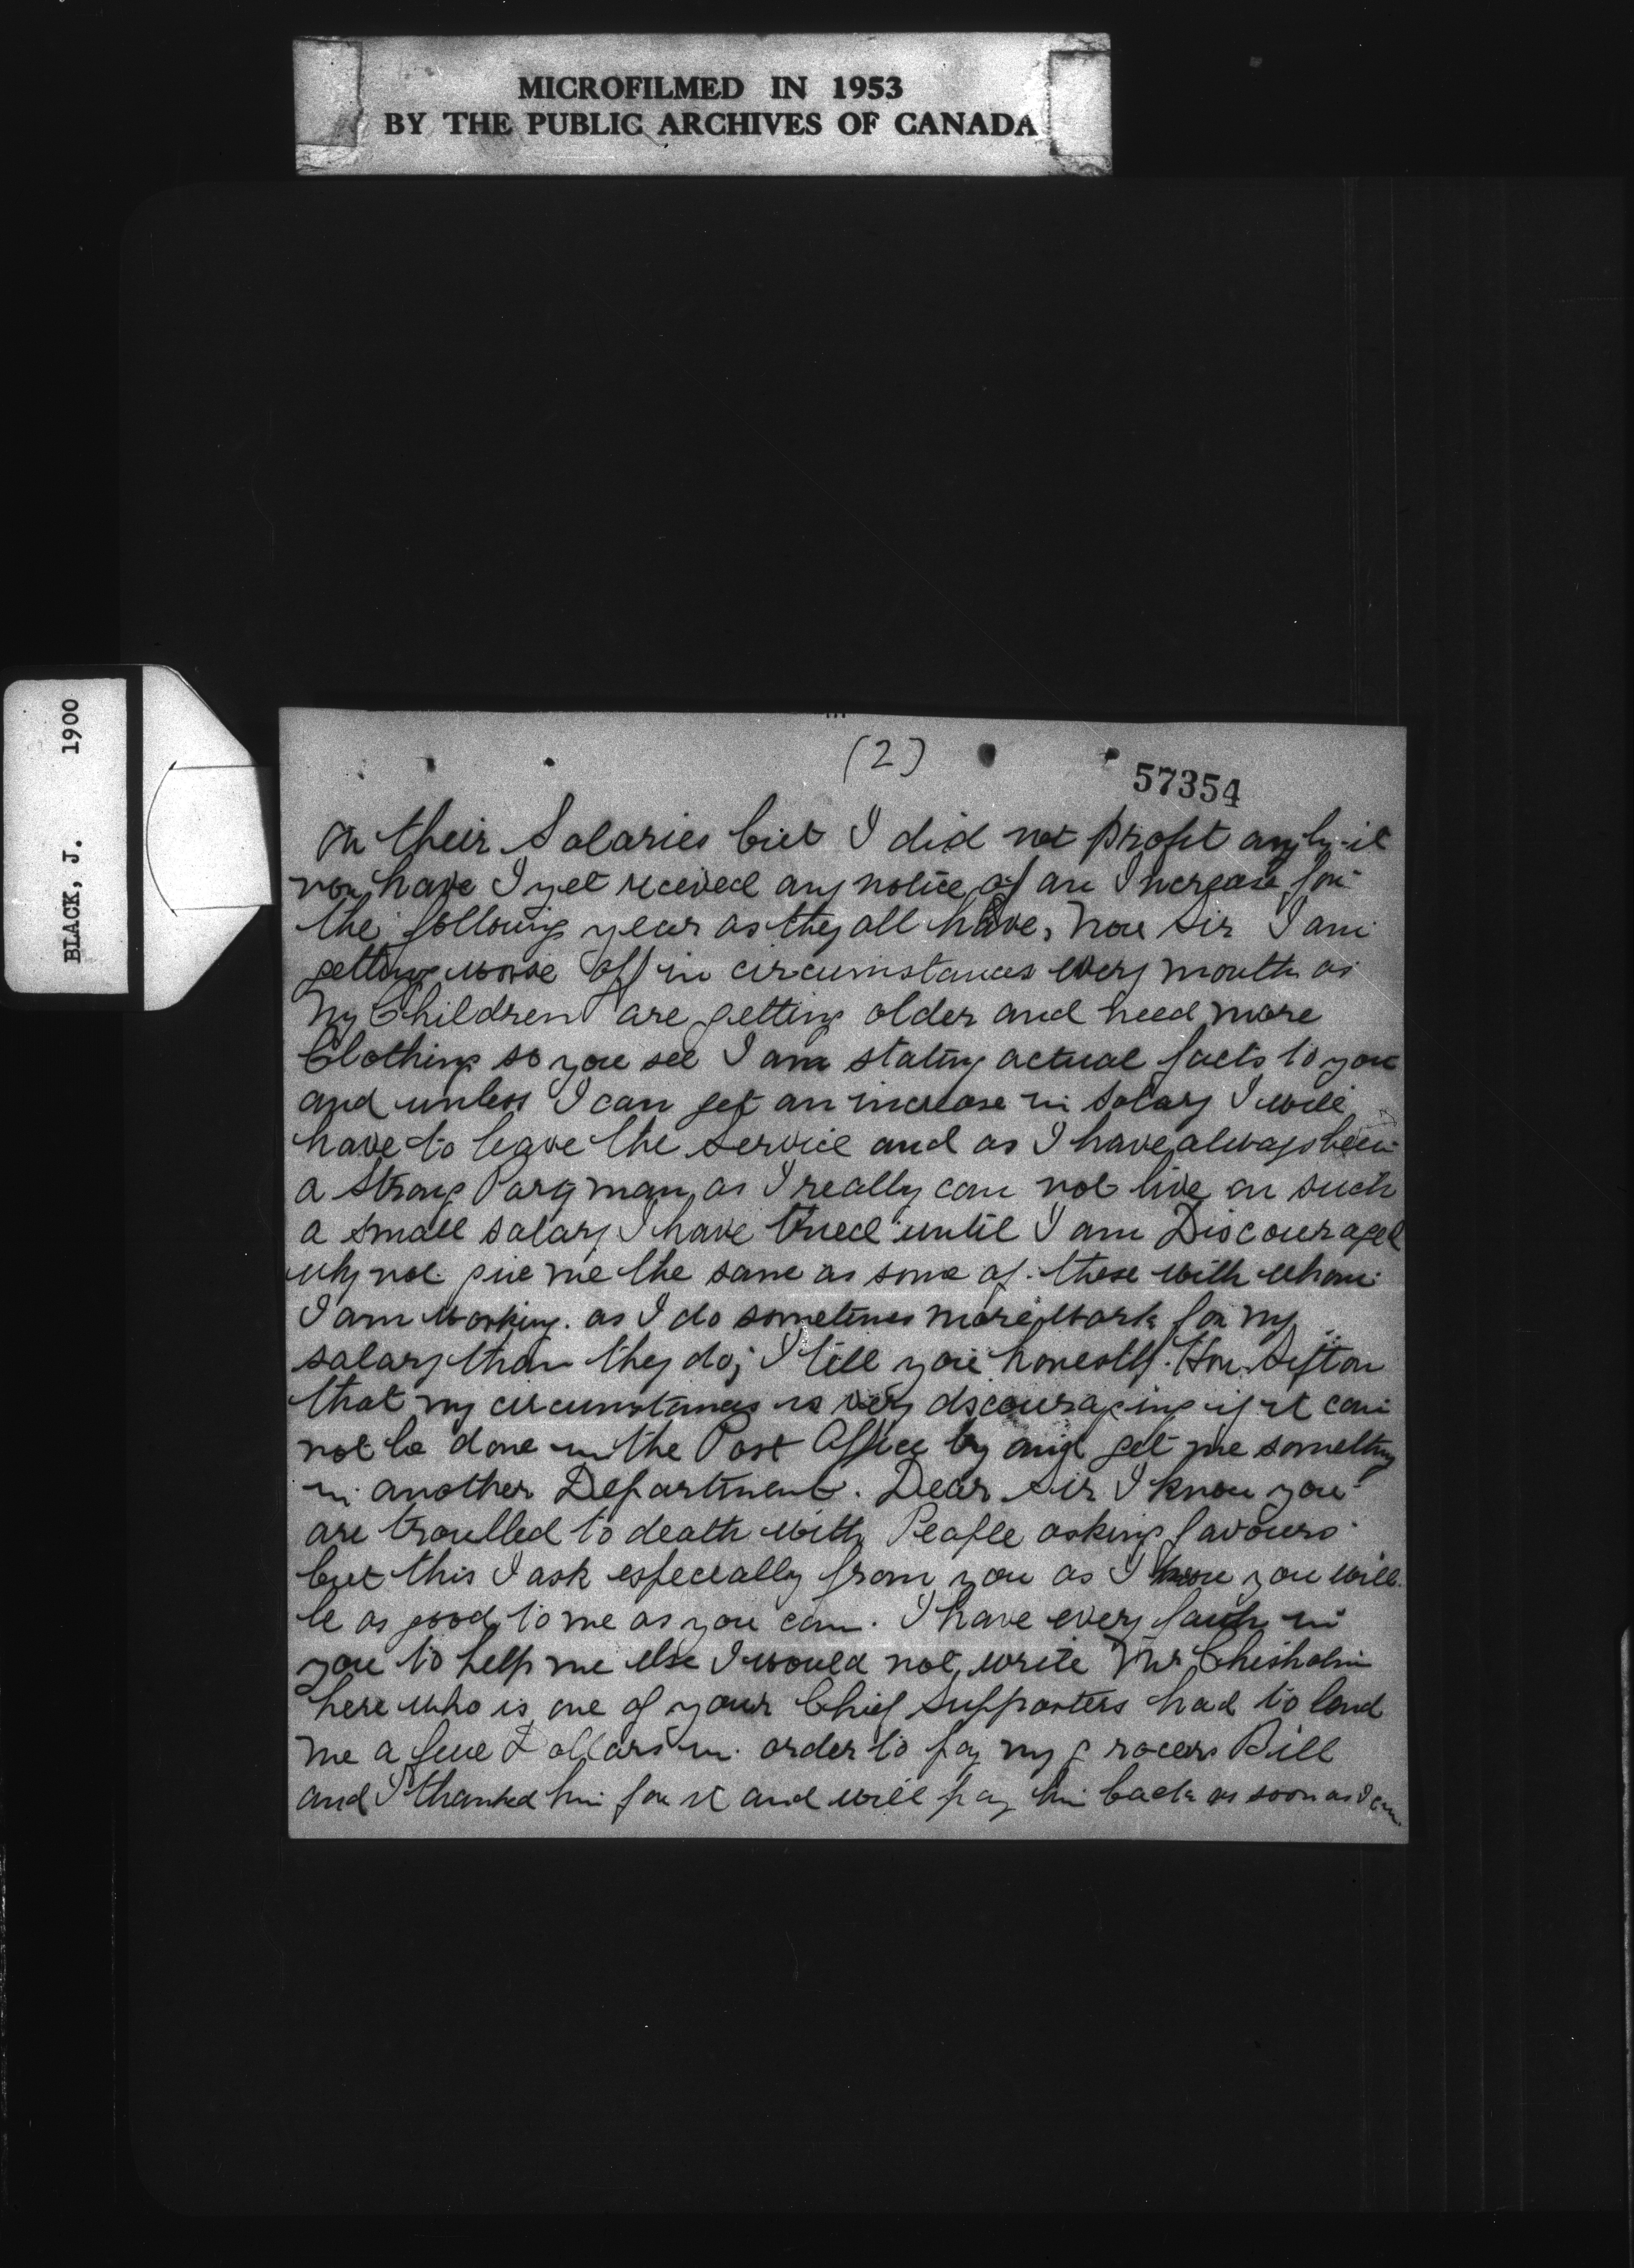 MICROFILMED IN 1953
BY THE PUBLIC ARCHIVES OF CANADA
BLACK, J. 1900
(2)
57354
on their Salaries but I did not profit any by it
nor have I yet received any notice of an Increase for
the following year as they all have, Now Sir I am
getting worse off in circumstances every month as
my Children are getting older and need more
Clothing so you see I am stating actual facts to you
and unless I can get an increase in salary I will
have to leave the service and as I have always been
a strong Party man, as I really can not live on such
a small salary I have tried until I am Discouraged
why not give me the same as some of these with whom
I am working. as I do sometimes more work for my
salary than they do; I tell you honestly. Hon. Sifton
that my circumstances is very discouraging if it can
not be done in the Post Office try and get me something
in another Department. Dear Sir I know you
are troulled to death with People asking favours
but this I ask especially from you as I know you will
be as good to me as you can. I have every faith in
you to help me else I would not write Mr Chisholm
here who is one of your Chief Supporters had to lend
me a few Dollars in order to pay my grocers Bill
and I thanked him for it and will pay him back as soon as I can.